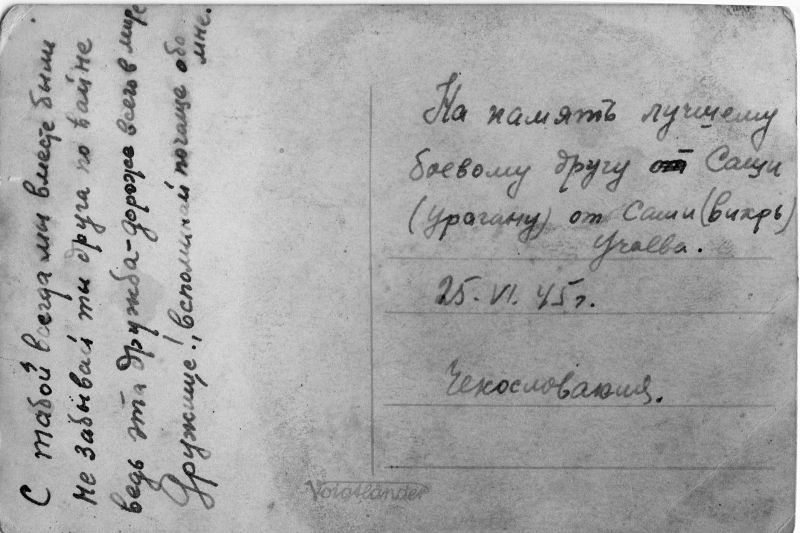 С табой всегда мы вместе были
Не забывай ты друга по вайне
ведь эта дружба-дороже всего в мире
Дружище!, вспоминай почаще обо
мне.
На память лучшему
боевому другу от Саши
(Урагану) от Саши (вихрь)
Учаева.
25.VI.45г.
Чехословакия.
Voigtländer